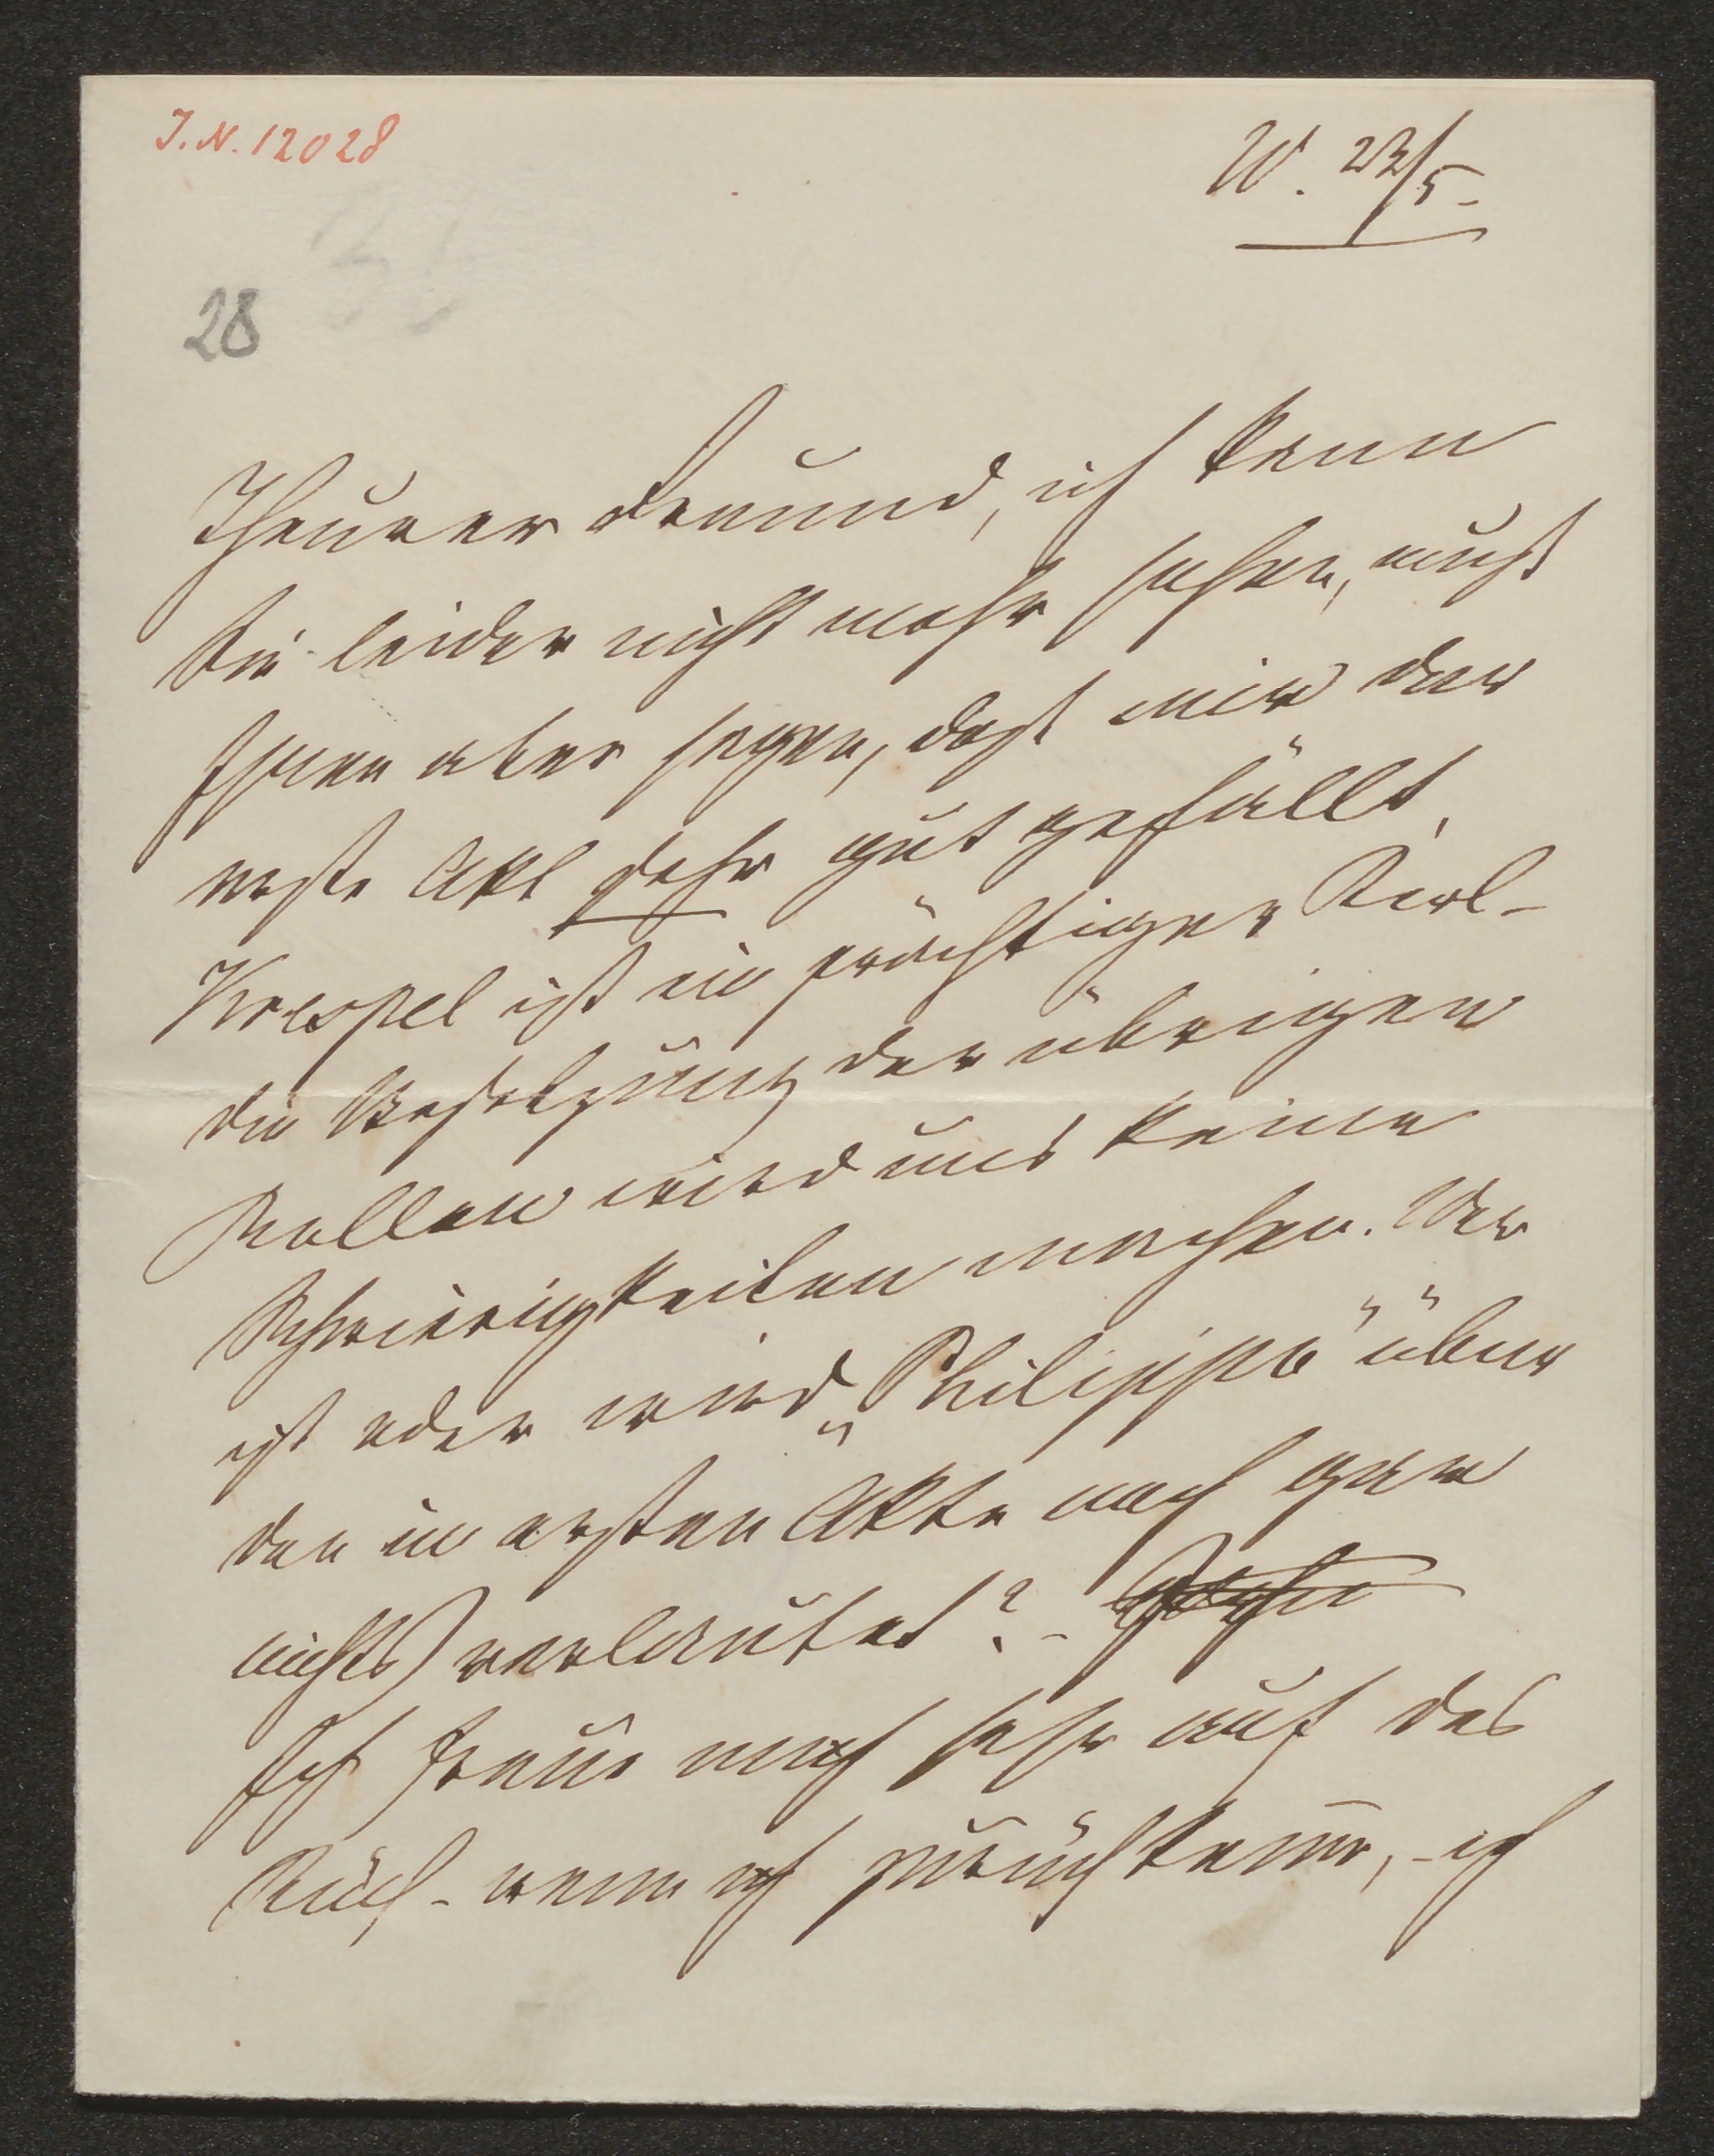 J. N. 12028
W. 23/5.
28
Theurer Freund, ich kann
Sie leider nicht mehr sehen, muß
Ihnen aber sagen, daß mir der
erste Akt sehr gut gefällt,
Krespel ist ein prächtiger Kerl -
die Besetzung der übrigen
Rollen wird uns keine
Schwierigkeiten machen. Wer
ist oder wird „Philippo" über
den im ersten Akte noch gar
nichts verlautet? -
Ich freue mich sehr auf das
Buch - wenn ich zurückkom̅e, - ich